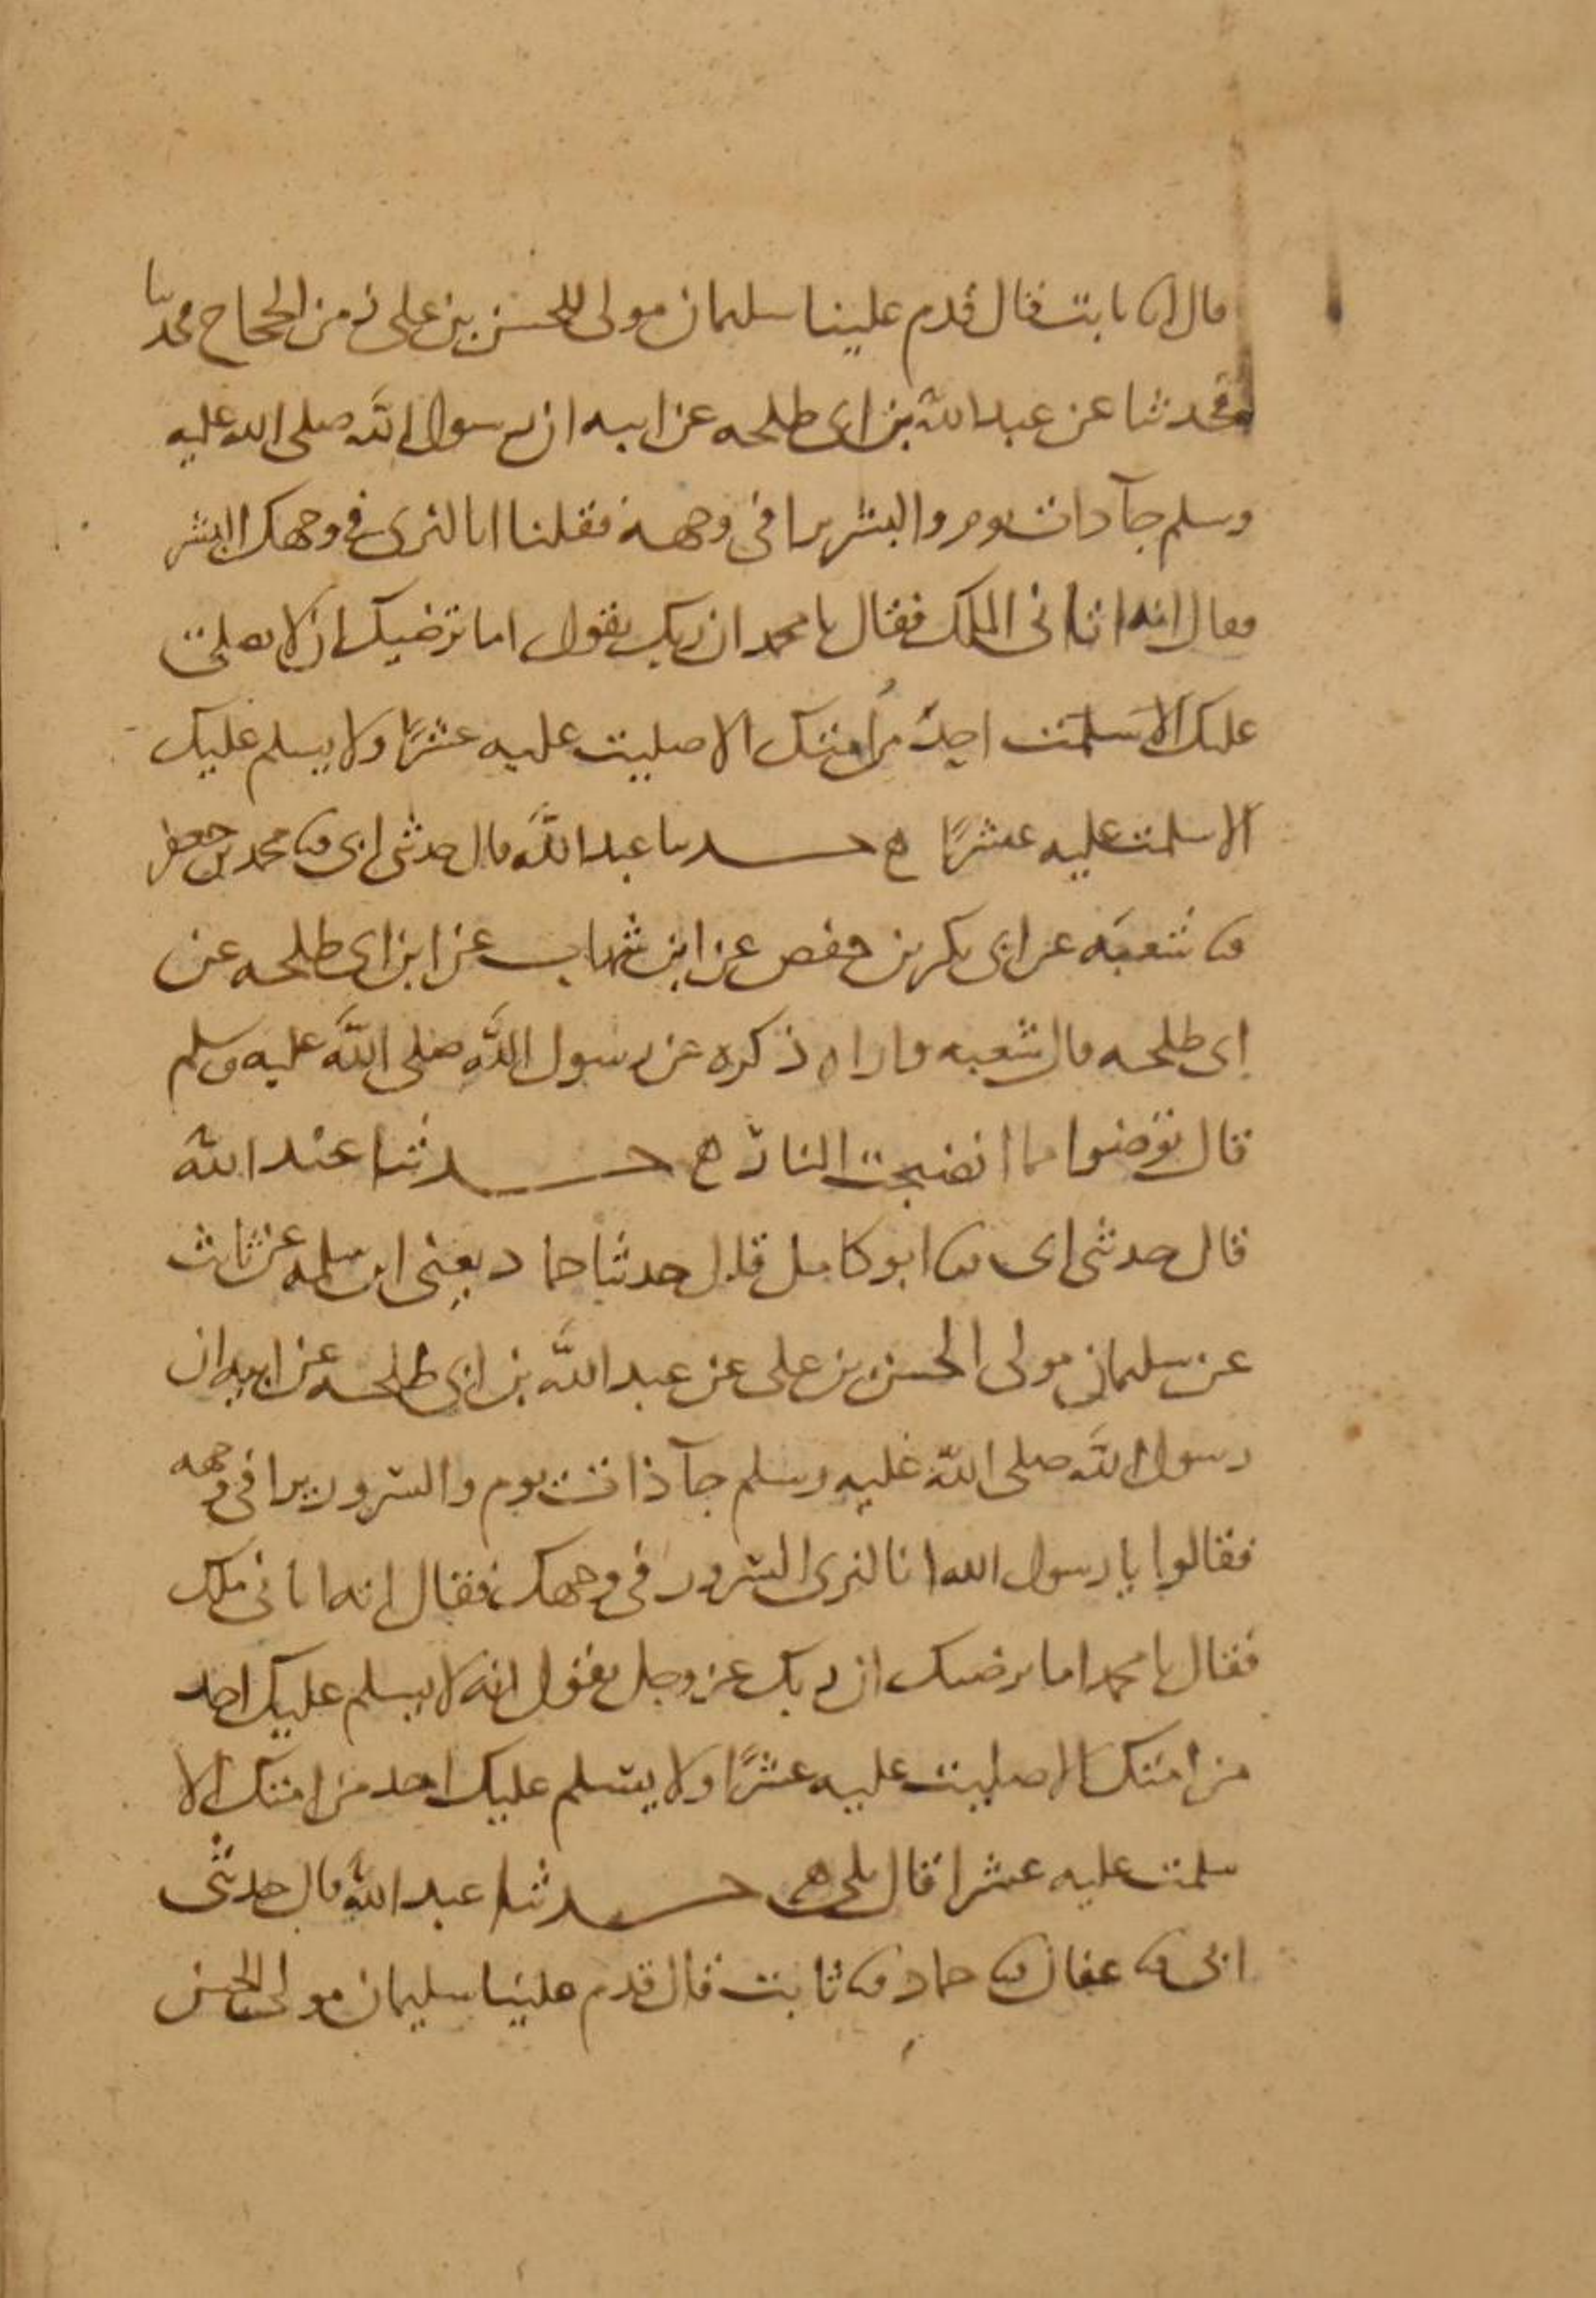 قال انا ثابت قال قدم علينا سليمان مولى للحسن بن على زمن الحجاج فحدثنا
فحدثنا عن عبد الله بن ابى طلحه عن ابيه ان رسول الله صلى الله عليه
وسلم جآ ذات يوم والبشر يرا فى وجهه فقلنا انا لنرى فى وجهك البشر
فقال انه اتانى الملك فقال يا محمد ان ربك يقول اما ترضيك ان لا يصلى
عليك الا سلمت احد من امتك الا صليت عليه عشرًا ولا يسلم عليك
الا سلمت عليه عشرًا ه حدثنا عبد الله قال حدثنى ابى ثنا محمد بن جعفر
ثنا شعبة عن ابى بكر بن حفص عن ابن شهاب عن ابن ابى طلحه عن
ابى طلحه قال شعبه واراه ذكره عن رسول الله صلى الله عليه وسلم
قال توضئوا مما انضجت النار ه حدثنا عبد الله
قال حدثنى ابى ثنا ابو كامل قال حدثنا حماد يعنى ابن سلمه عن ثابت
عن سليمان مولى الحسن بن على عن عبد الله بن ابى طلحه عن ابيه ان
رسول الله صلى الله عليه وسلم جآ ذات يوم والسرور يرا فى وجهه
فقالوا يا رسول الله انا لنرى السرور فى وجهك فقال انه اتانى ملك
فقال يا محمد اما يرضيك ان ربك عز وجل يقول انه لا يسلم عليك احد
من امتك الا صليت عليه عشرًا ولا يسلم عليك احد من امتك الا
سلمت عليه عشرا قال بلى ه حدثنا عبد الله قال حدثنى
ابى ثنا عفان ثنا حماد ثنا ثابت قال قدم علينا سليمان مولى الحسن